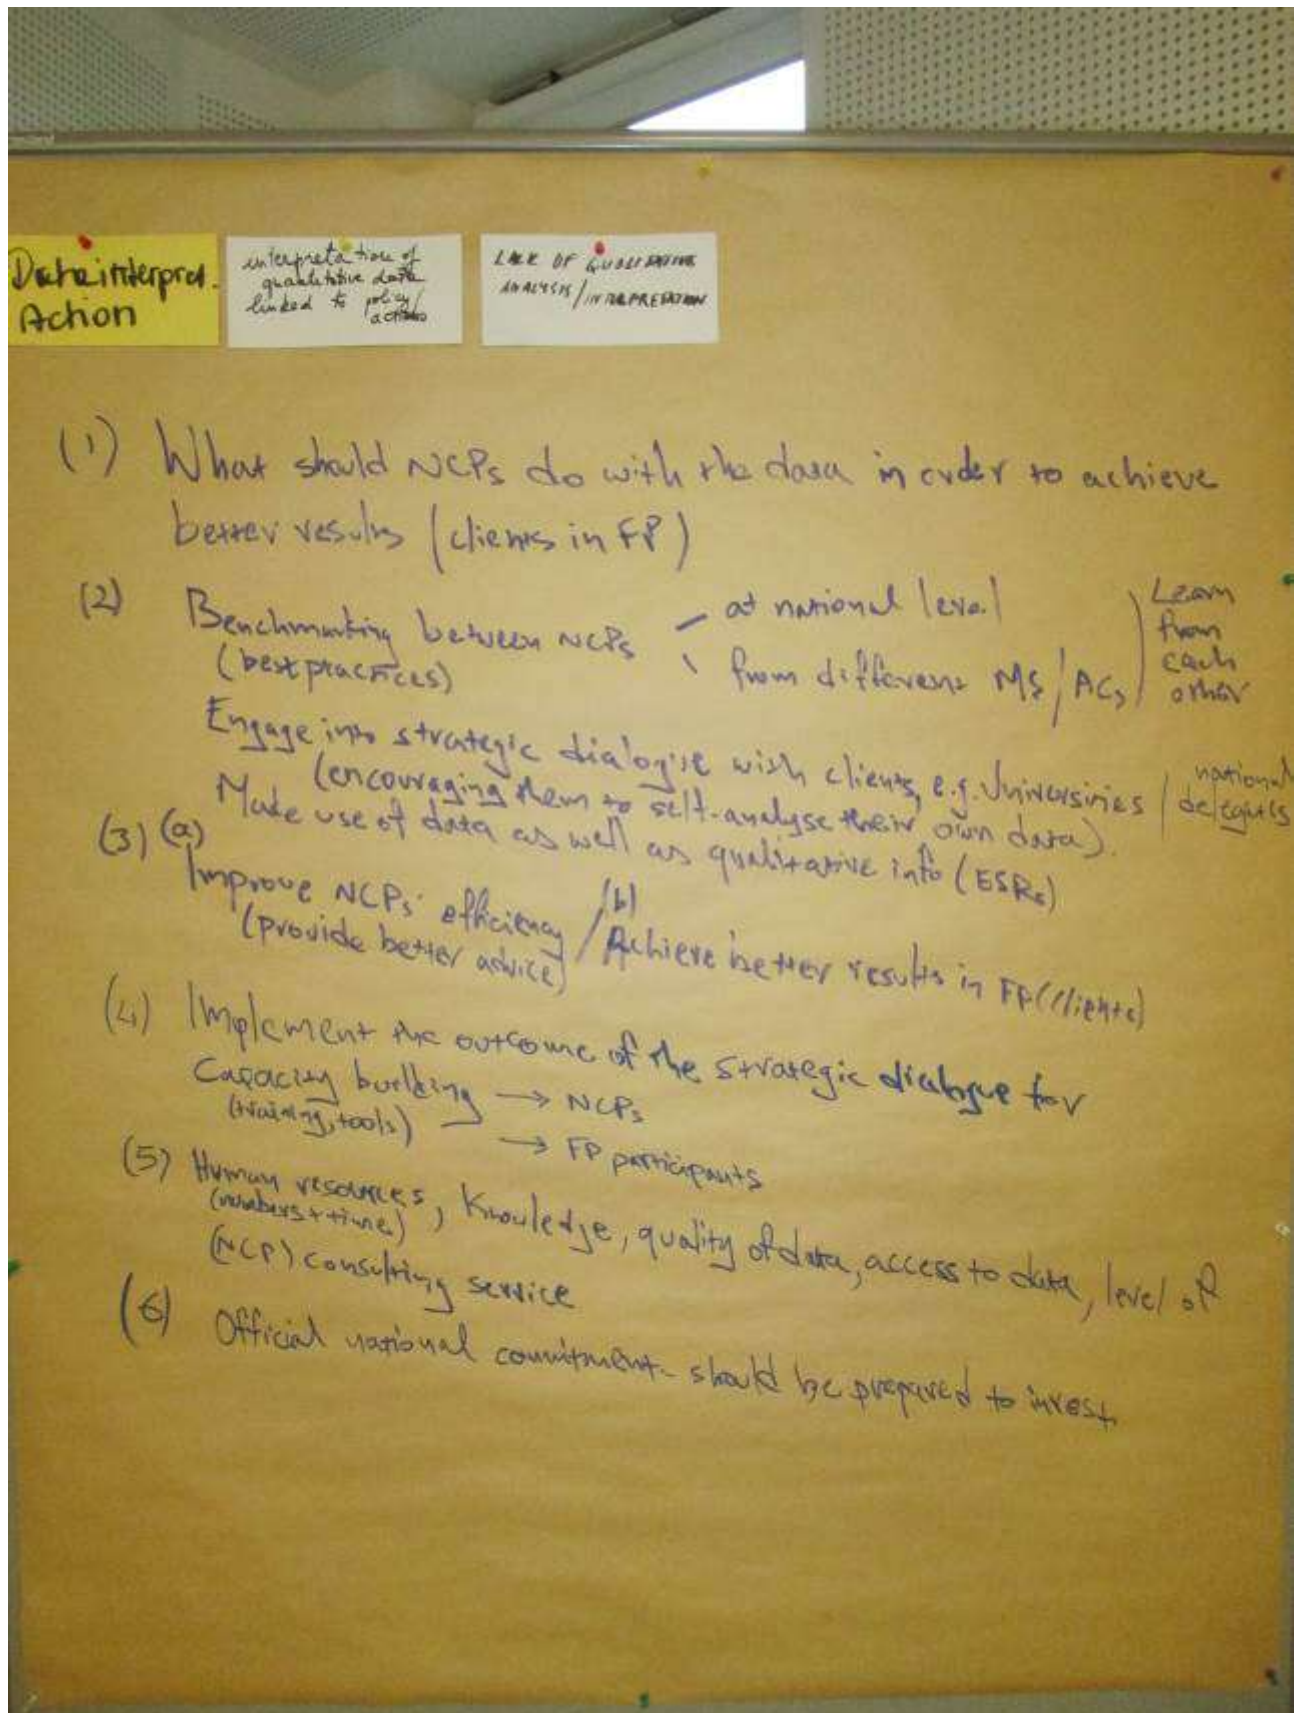 Data interpret.
Action
interpretation of
quantitative data
linked to policy/
actions
LACK OF QUALITATIVE
ANALYSIS/INTERPRETATION
(1) What should NCPs do with the data in order to achieve
better results (clients in FP)
(2) Benchmarking between NCPs - at national level
(best practices) \ from different MS/ACs
Learn
from
each
other
Engage into strategic dialogue with clients, e.g. Universities / national
delegates
(encouraging them to self-analyse their own data).
Make use of data as well as qualitative info (ESRs)
(3) (a) Improve NCPs' efficiency / (b) Achieve better results in FP (clients)
(provide better advice)
(4) Implement the outcome of the strategic dialogue for
Capacity building → NCPs
(training, tools) → FP participants
(5) Human resources, Knowledge, quality of data, access to data, level of
(numbers + time)
(NCP) consulting service
(6) Official national commitment - should be prepared to invest.